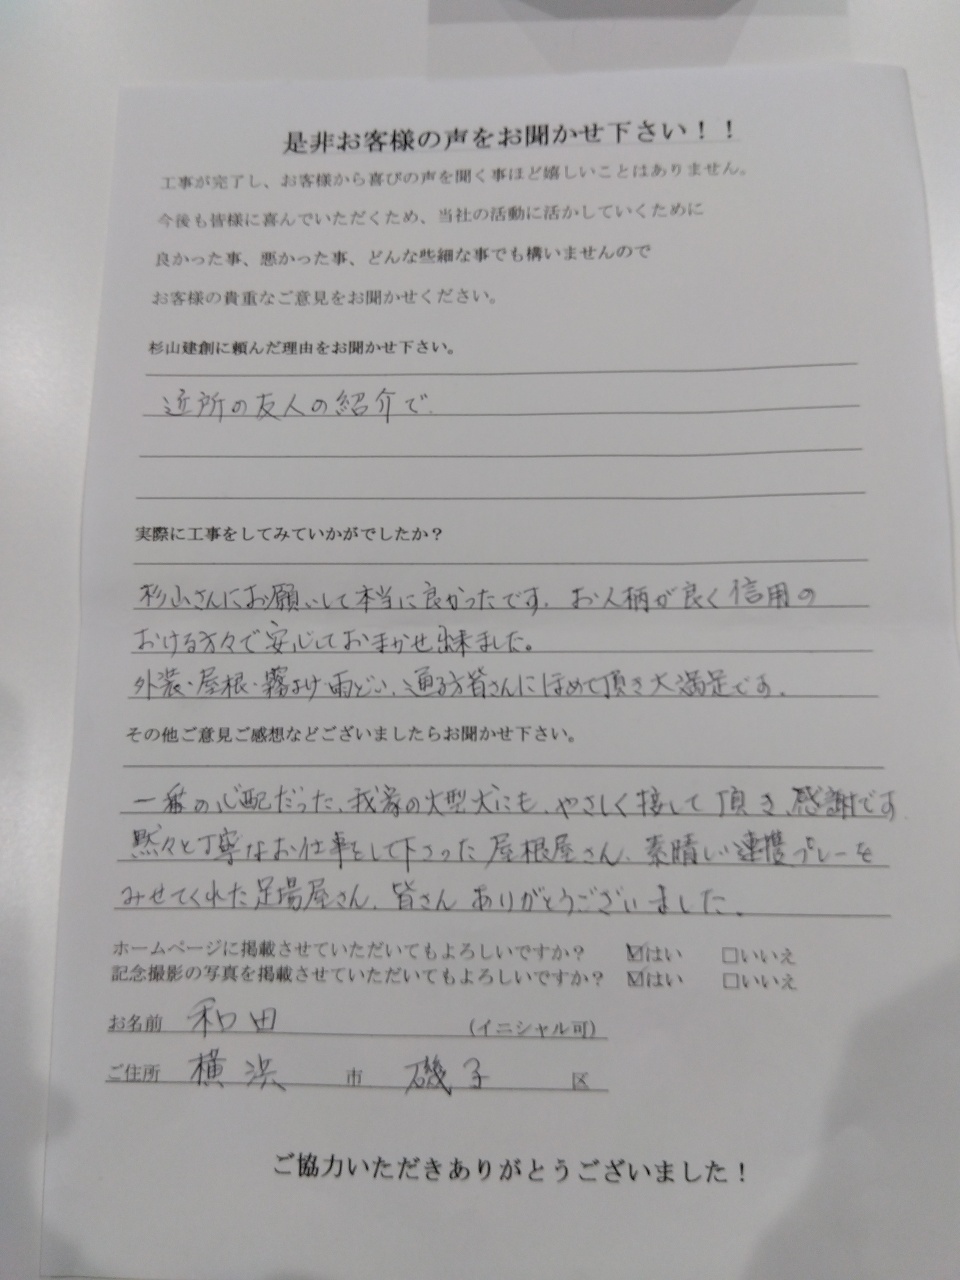 是非お客様の声をお聞かせ下さい！！
工事が完了し、お客様から喜びの声を聞く事ほど嬉しいことはありません。
今後も皆様に喜んでいただくため、当社の活動に活かしていくために
良かった事、悪かった事、どんな些細な事でも構いませんので
お客様の貴重なご意見をお聞かせください。
杉山建創に頼んだ理由をお聞かせ下さい。
近所の友人の紹介で.
実際に工事をしてみていかがでしたか？
杉山さんにお願いして本当に良かったです. お人柄が良く信用の
おける方々で安心しておまかせ出来ました。
外装・屋根・霧よけ・雨どい、通る方皆さんにほめて頂き大満足です.
その他ご意見ご感想などございましたらお聞かせ下さい。
一番の心配だった、我家の大型犬にも、やさしく接して頂き、感謝です
黙々と丁寧なお仕事をして下さった屋根屋さん、素晴しい連携プレーを
みせてくれた足場屋さん、皆さんありがとうございました.
ホームページに掲載させていただいてもよろしいですか？ ☑はい □いいえ
記念撮影の写真を掲載させていただいてもよろしいですか？ ☑はい □いいえ
お名前 和田 (イニシャル可)
ご住所 横浜 市 磯子 区
ご協力いただきありがとうございました！